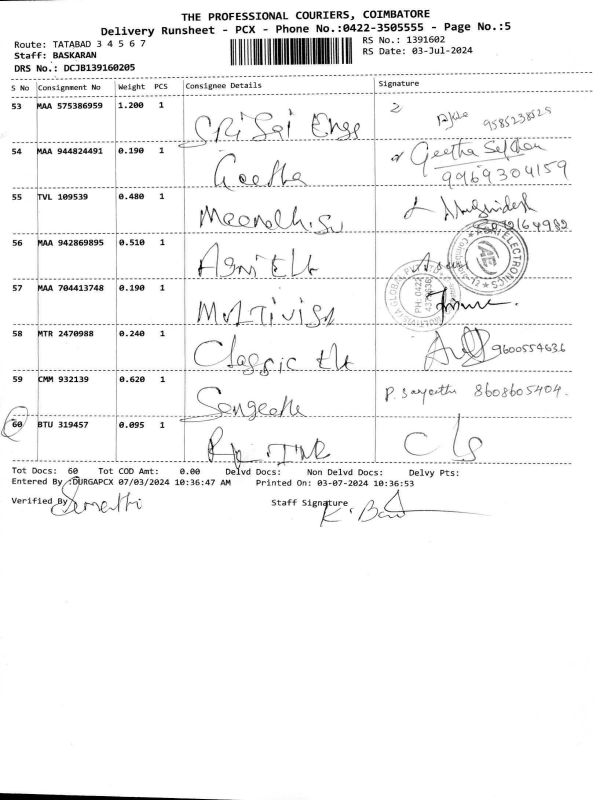 THE PROFESSIONAL COURIERS, COIMBATORE
Delivery Runsheet - PCX - Phone No.:0422-3505555 - Page No.:5
Route: TATABAD 3 4 5 6 7 RS No.: 1391602
Staff: BASKARAN RS Date: 03-Jul-2024
DRS No.: DCJB139160205
S No Consignment No Weight PCS Consignee Details Signature
53 MAA 575386959 1.200 1
SRi Sai Engg 9585238525
54 MAA 944824491 0.190 1 Geetha
Geetha 9969304159
55 TVL 109539 0.480 1
56 MAA 942869895 0.510 1
Agni Elt
57 MAA 704413748 0.190 1
Multivisa
58 MTR 2470988 0.240 1
Classic Elt 9600554636
59 CMM 932139 0.620 1 8608605404.
Sangeetha
60 BTU 319457 0.095 1
Tot Docs: 60 Tot COD Amt: 0.00 Delvd Docs: Non Delvd Docs: Delvy Pts:
Entered By :DURGAPCX 07/03/2024 10:36:47 AM Printed On: 03-07-2024 10:36:53
Verified By Staff Signature